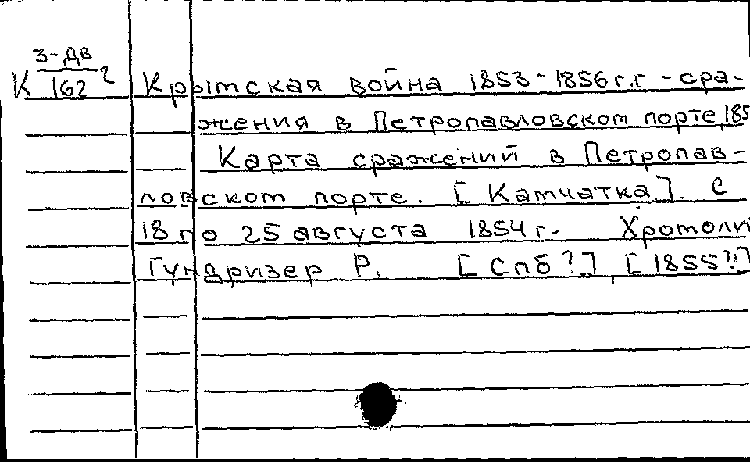 З-ДВ
К 162 2
Крымская война 1853-1856 г.г - сра-
жения в Петропавловском порте, 185
Карта сражений в Петропав-
ловском порте. [Камчатка]. С
18 по 25 августа 1854 г. Хромоли
Гундризер Р. [Спб?], [1855?]